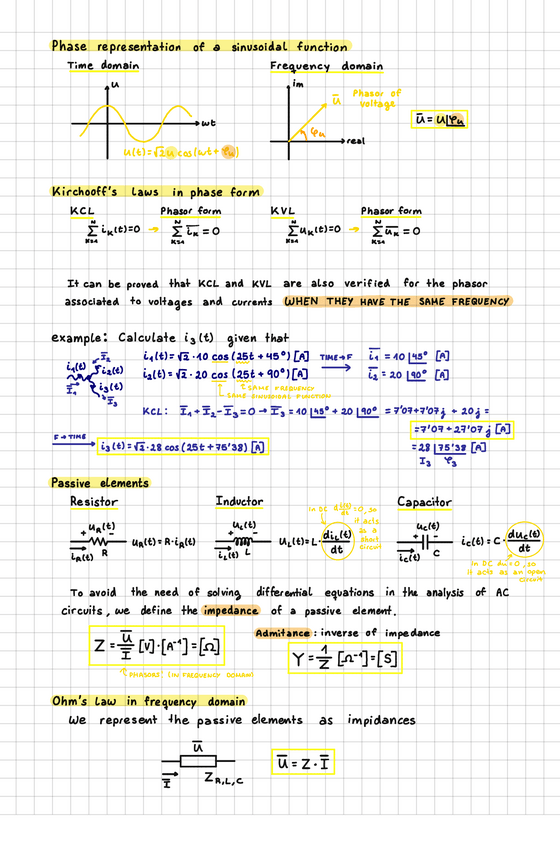 Phase representation of a sinusoidal function
Time domain
Frequency domain
u
ωt
u(t)=√2u cos(ωt+φu)
im
real
ū
φu
Phasor of
voltage
ū = U|φu
Kirchooff's laws in phase form
KCL
Phasor form
KVL
Phasor form
N Σ K=1 iK(t)=0 → N Σ K=1 īK = 0
N Σ K=1 uK(t)=0 → N Σ K=1 ūK = 0
It can be proved that KCL and KVL are also verified for the phasor
associated to voltages and currents WHEN THEY HAVE THE SAME FREQUENCY
example: Calculate i3(t) given that
i1(t) I̅2 i2(t) I̅1 i3(t) I̅3
i1(t)=√2·10 cos(25t+45º) [A] TIME→F i̅1 = 10|45º [A]
i2(t)=√2·20 cos(25t+90º) [A] I̅2 = 20|90º [A]
↑SAME FREQUENCY
SAME SINUSOIDAL FUNCTION
KCL: I̅1+I̅2-I̅3=0 → I̅3=10|45º+20|90º = 7'07+7'07j + 20j =
=7'07+27'07j [A]
F→TIME
i3(t)=√2·28 cos(25t+75'38) [A]
=28|75'38 [A]
I3 φ3
Passive elements
Resistor
Inductor
Capacitor
+ uR(t) - iR(t) R
uR(t)=R·iR(t)
+ uL(t) - iL(t) L
uL(t)=L·diL(t)/dt
In DC di(t)/dt=0, so
it acts
as a
short
circuit
+ uC(t) - iC(t) C
iC(t)=C·duC(t)/dt
In DC du=0, so
it acts as an open
circuit
To avoid the need of solving differential equations in the analysis of AC
circuits, we define the impedance of a passive element.
Z = U̅/I̅ [V]·[A⁻¹]=[Ω]
↑PHASORS! (IN FREQUENCY DOMAIN)
Admitance: inverse of impedance
Y = 1/Z [Ω⁻¹]=[S]
Ohm's Law in frequency domain
We represent the passive elements as impidances
U̅
I̅
ZR,L,C
U̅ = Z·I̅